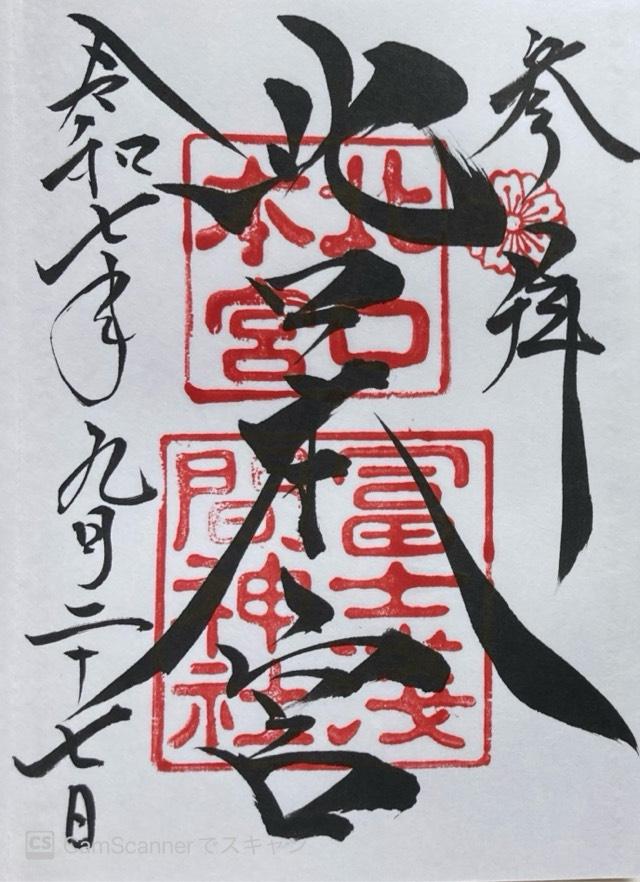 参拝
北口本宮
北口
本宮
冨士浅
間神社
令和七年九月二十七日
CS CamScannerでスキャン